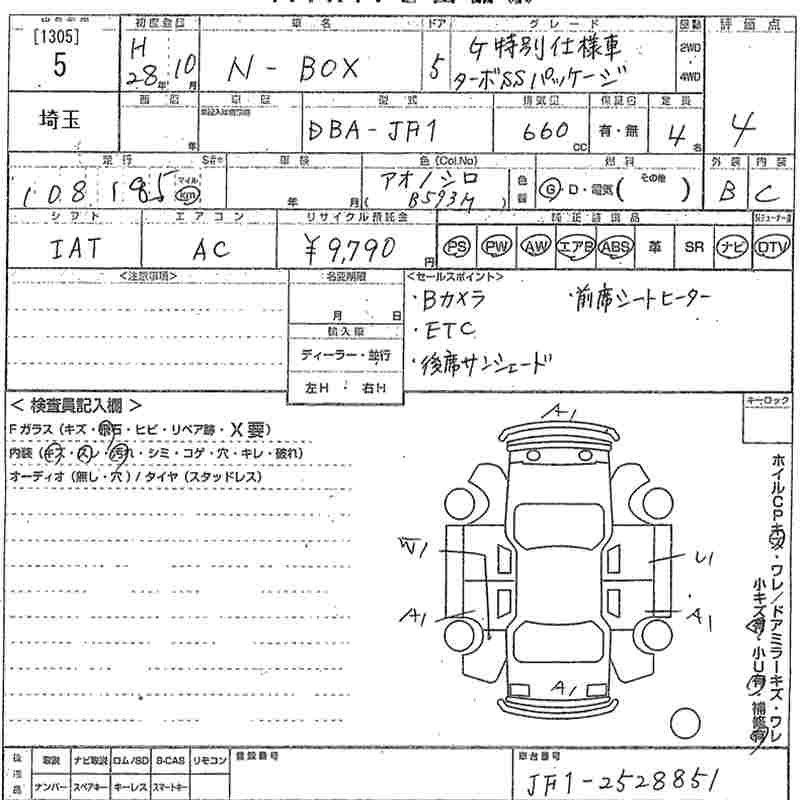 初度登録 車名 ドア グレード 駆動 評価点
[1305]
5
H 28年 10月
N-BOX
5
G特別仕様車
ターボSSパッケージ
2WD
4WD
4
埼玉
車歴 型式 排気量 保証書 定員
年
DBA-JF1
660 CC
有・無
4名
走行 S#* 車検 色(Col.No) 燃料 外装 内装
108185 マイル km
年 月
アオ/シロ
(B593M)
色替
G・D・電気( その他 )
B
C
シフト エアコン リサイクル預託金 純正装備品
IAT
AC
¥9,790円
PS PW AW エアB ABS 革 SR ナビ DTV
<注意事項>
名変期限
月 日
輸入車
ディーラー・並行
左H・右H
<セールスポイント>
・Bカメラ ・前席シートヒーター
・ETC
・後席サンシェード
<検査員記入欄>
Fガラス(キズ・飛石・ヒビ・リペア跡・X要)
内装(キズ・スレ・汚れ・シミ・コゲ・穴・キレ・破れ)
オーディオ(無し・穴)/タイヤ(スタッドレス)
キーロック
A1
W1
U1
A1
A1
A1
ホイルCPキズ・ワレ/ドアミラーキズ・ワレ
小キズ有・小U有・補修有
後流品
取説 ナビ取説 ロム/SD B-CAS リモコン
ナンバー スペアキー キーレス スマートキー
登録番号
車台番号
JF1-2528851